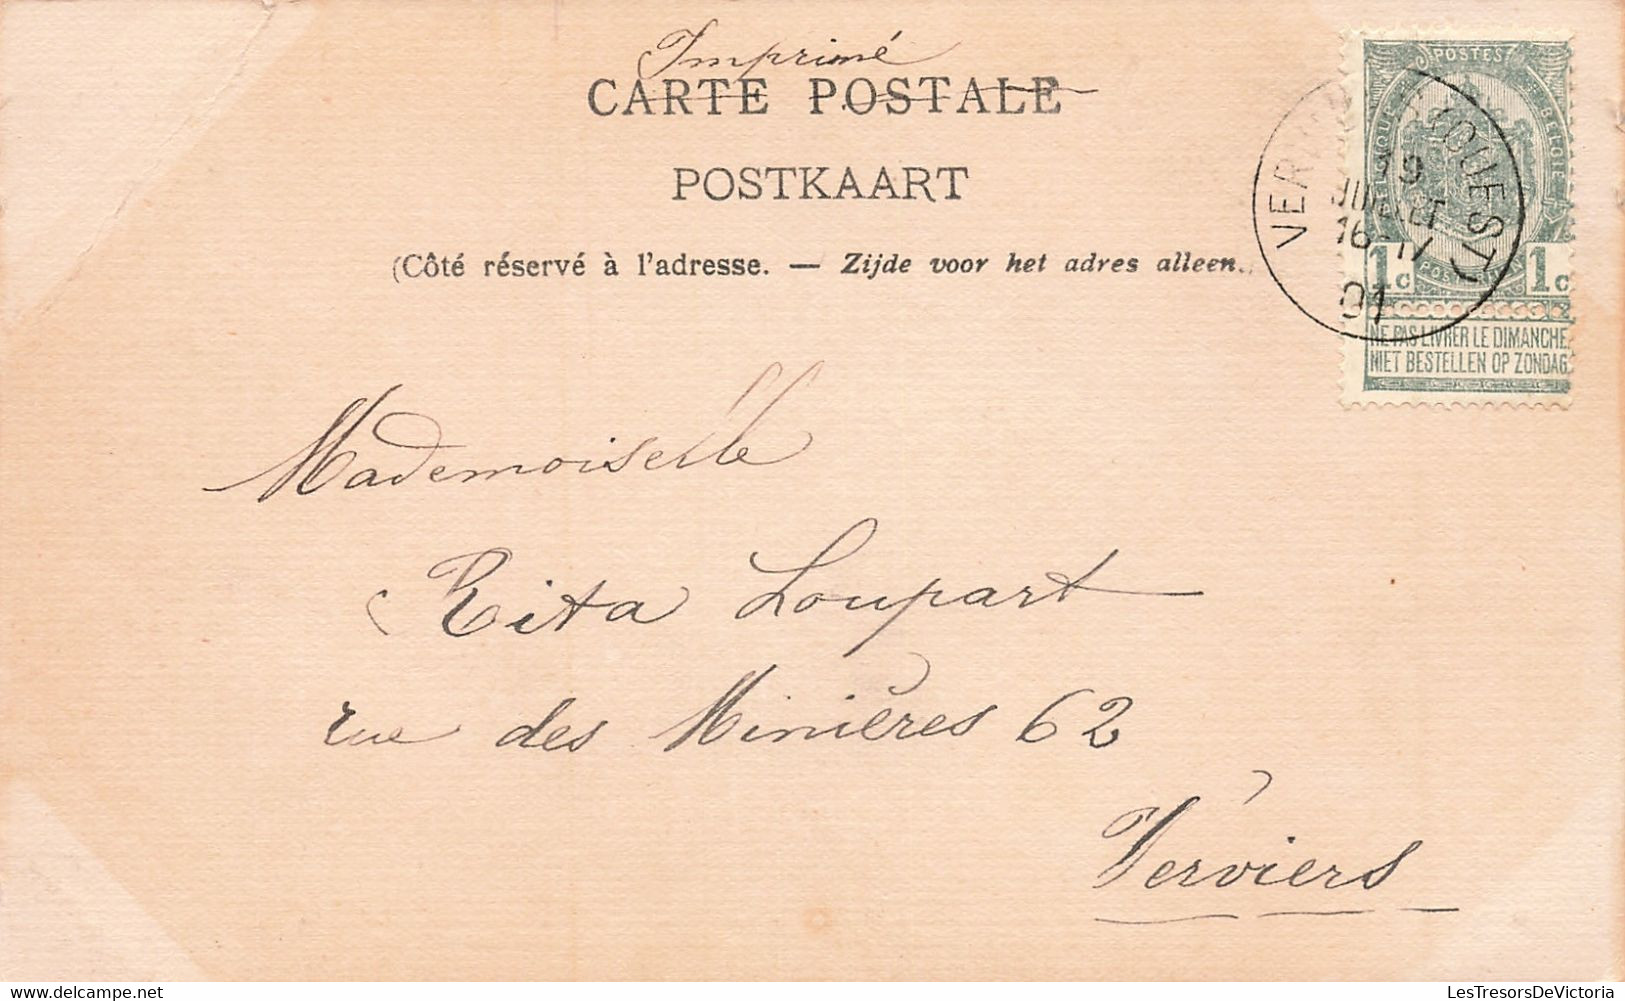 Imprimé
CARTE POSTALE
POSTKAART
(Côté réservé à l'adresse. — Zijde voor het adres alleen.
POSTES
BELGIQUE BELGIË
VERVIERS (OUEST)
19
JUILLET
16-17
01
1c 1c
NE PAS LIVRER LE DIMANCHE
NIET BESTELLEN OP ZONDAG
Mademoiselle
Rita Loupart
rue des Minières 62
Verviers
LesTresorsDeVictoria